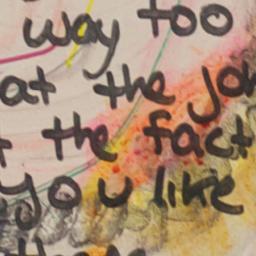 way too
at the jo
the fact
you like